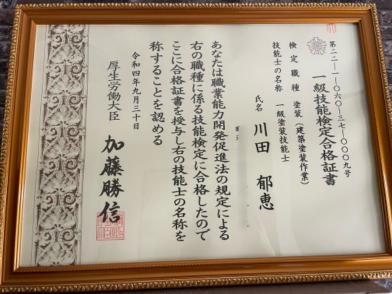 第二二-一-〇六〇-三七-〇〇〇九号
一級技能検定合格証書
検定職種 塗装(建築塗装作業)
技能士の名称 一級塗装技能士
氏名 川田 郁恵
あなたは職業能力開発促進法の規定による
右の職種に係る技能検定に合格したので
ここに合格証書を授与し右の技能士の名称を
称することを認める
令和四年九月三十日
厚生労働大臣 加藤勝信